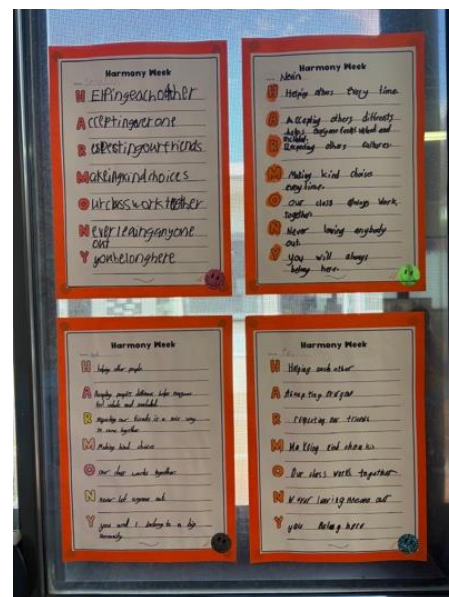 Harmony Week
H ElPingeachother
A ccePtingeverone
R esPestingourfriends
M akeingkindchoices
O urclassworktogether
N everleavinganyone
out
Y youbelonghere
Harmony Week
Nevin
H Helping others Every time.
A Accepting others differents
helps everyone feels valued and
included.
R Respecting others cultures.
M Making kind choice
every time.
O our class always work
together.
N Never leaving anybody
out.
Y you will always
belong here.
Harmony Week
H helping other people
A Accepting people's differences helps everyone
feel valued and included
R Respecting our friends is a nice way
to come together
M Making kind choice
O Our class works together
N never let anyone out
Y you and I belong to a big
community
Harmony Week
H Helping each other
A Accepting
R respecting our friends
M Making kind
O Our class works together
N Never leaving out
Y you Belong here